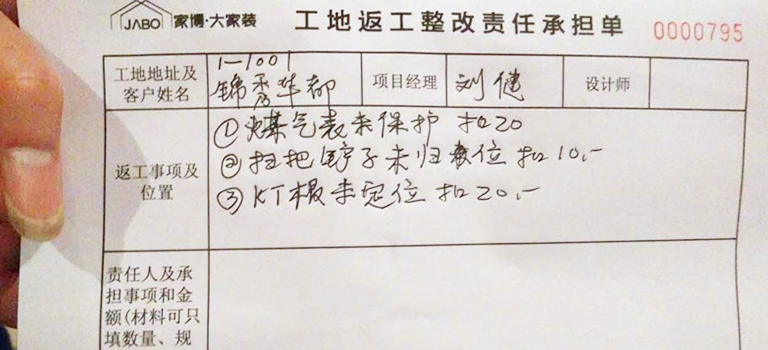 JABO 家博·大家装
工地返工整改责任承担单
0000795
工地地址及
客户姓名
1-1001
锦秀华都
项目经理
刘健
设计师
返工事项及
位置
①煤气表未保护 扣20
②扫把铲子未归位 扣10.-
③KT板未定位 扣20.-
责任人及承
担事项和金
额(材料可只
填数量、规